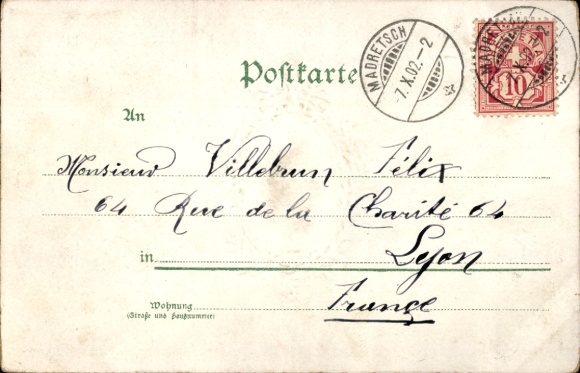 Postkarte
MADRETSCH
-7.X.02.-2
10
An
Monsieur Villebrun Félix
64 Rue de la Charité 64
in Lyon
Wohnung
(Straße und Hausnummer)
France